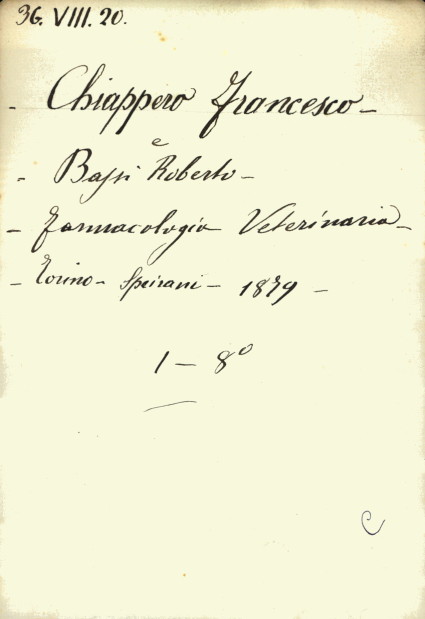 36. VIII. 20.
- Chiappero Francesco -
e
- Bassi Roberto -
- Farmacologia Veterinaria -
- Torino - Speirani - 1879 -
1 - 8º
C